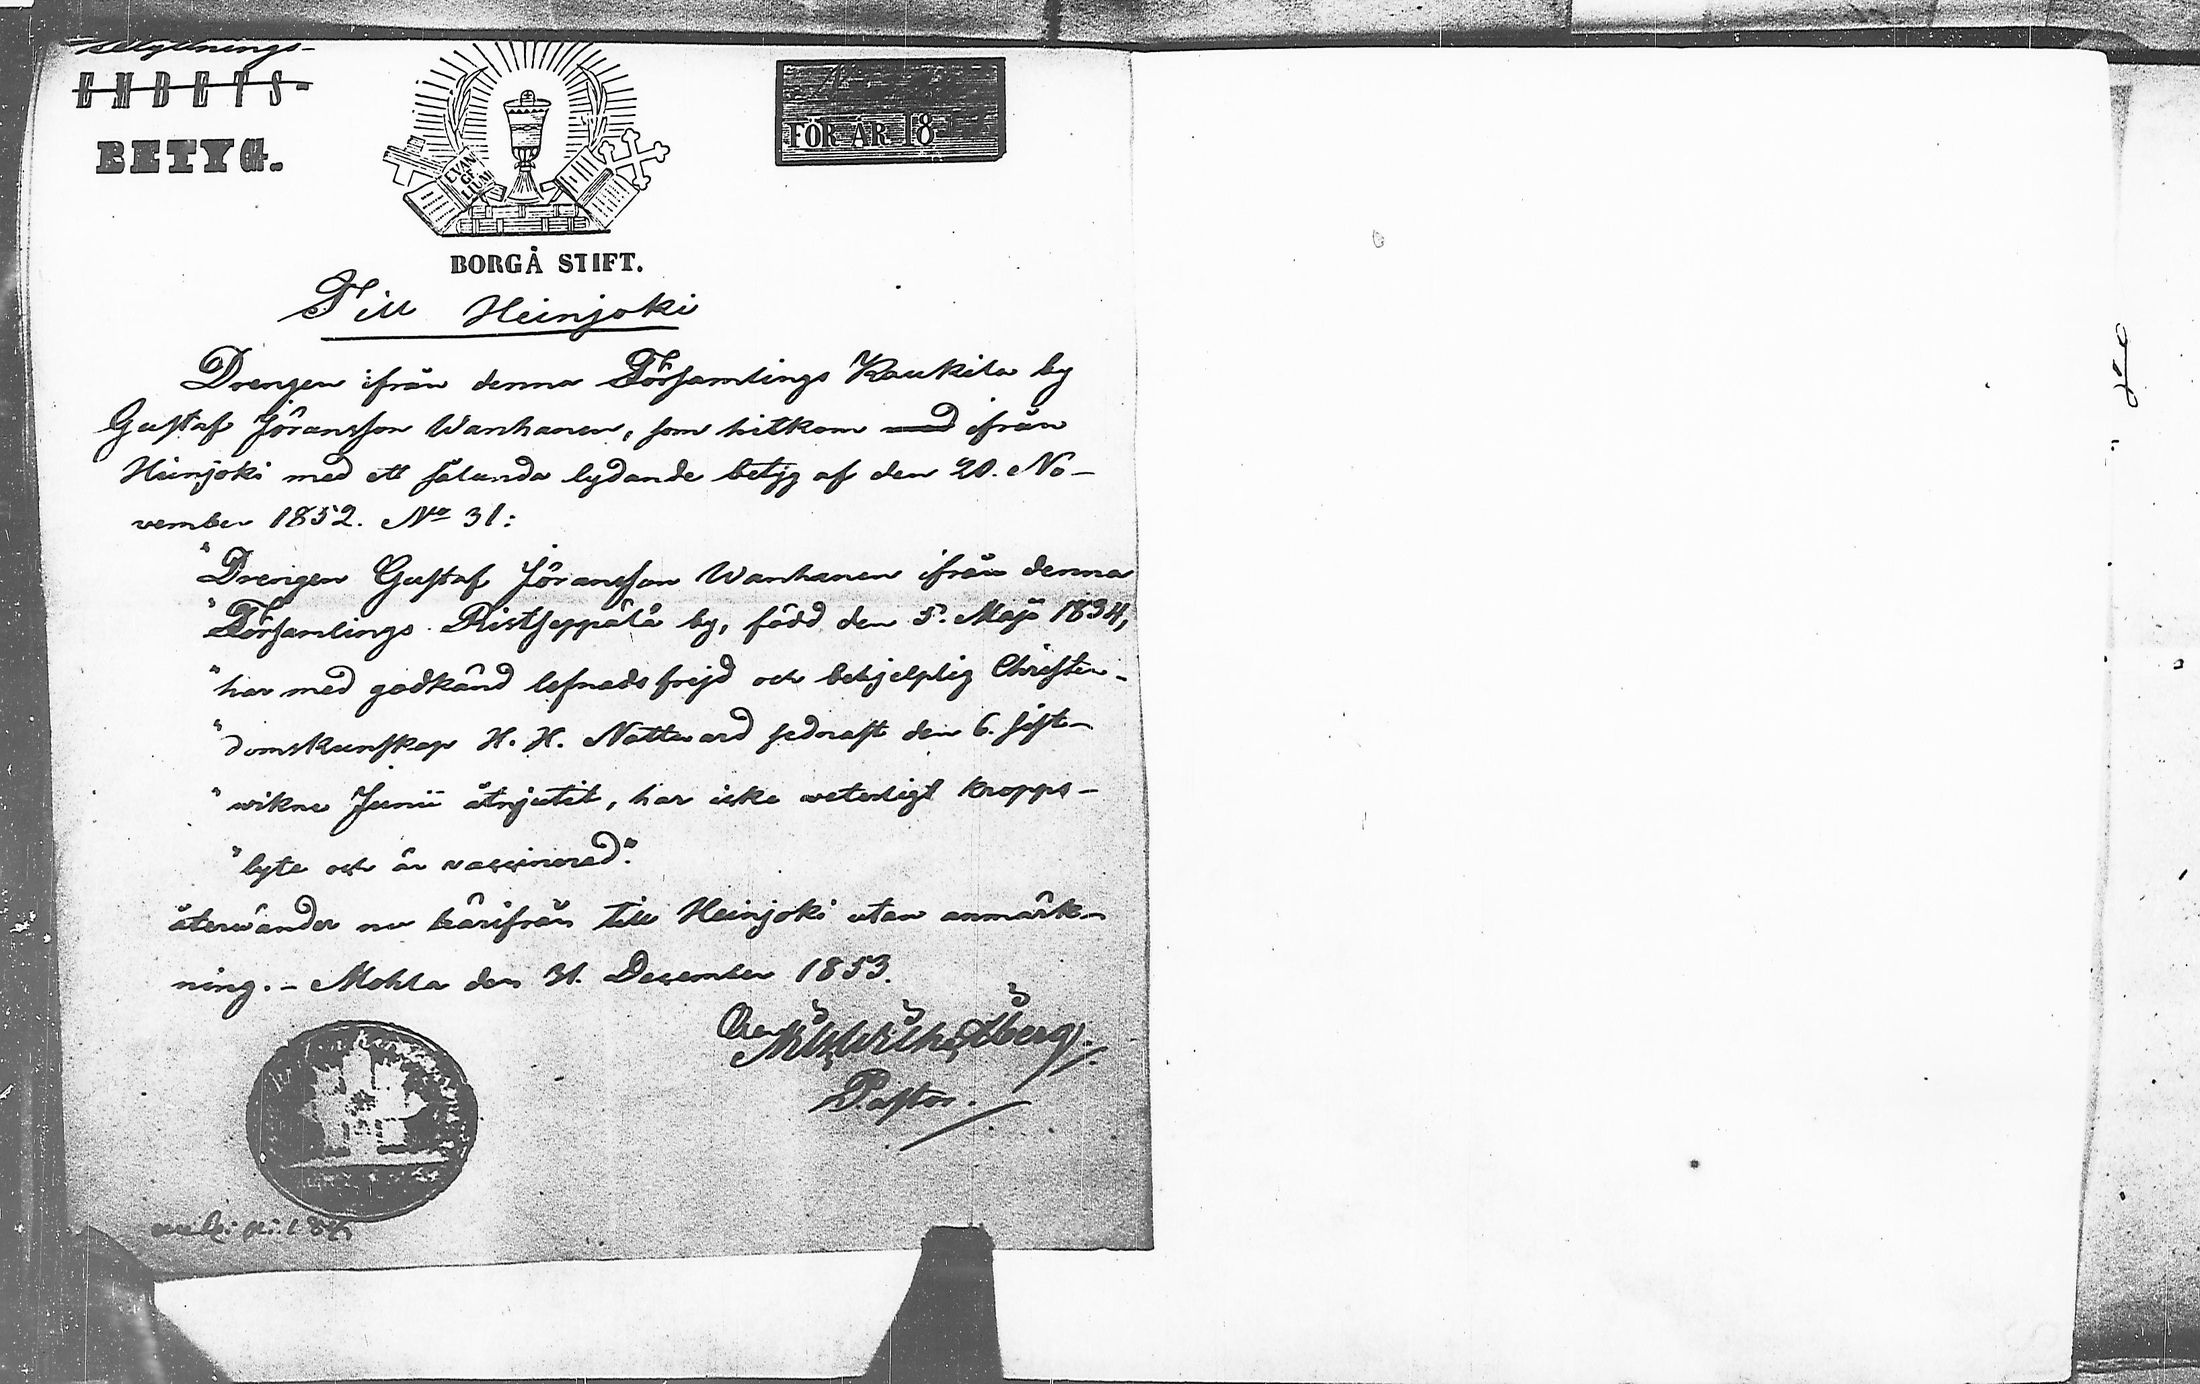 EMBETS-
BETYG.
EVAN
GE
LIUM
BORGÅ STIFT.
FÖR ÅR 18
Till Heinjoki
Drengen ifrån denna Församlings Kaukila by
Gustaf Jöransson Wanhanen, som hitkom med ifrån
Heinjoki med ett sålunda lydande betyg af den 20. No-
vember 1852. No 31:
"Drengen Gustaf Jöransson Wanhanen ifrån denna
"Församlings Ristseppälä by, född den 5. Maji 1834,
"har med godkänd lefnadsfrejd och behjelplig Christen-
"domskunskap H. H. Nattvard sednast den 6. sist-
"wikne Junii åtnjutit, har icke veterligt kropps-
"lyte och är vaccinerad."
återwänder nu härifrån till Heinjoki utan anmärk-
ning. - Mohla den 31. December 1853.
Pastor.